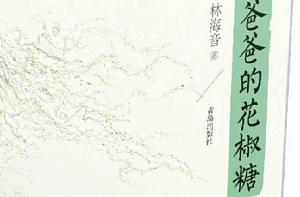 爸爸的花椒糖
林海音 著
青岛出版社